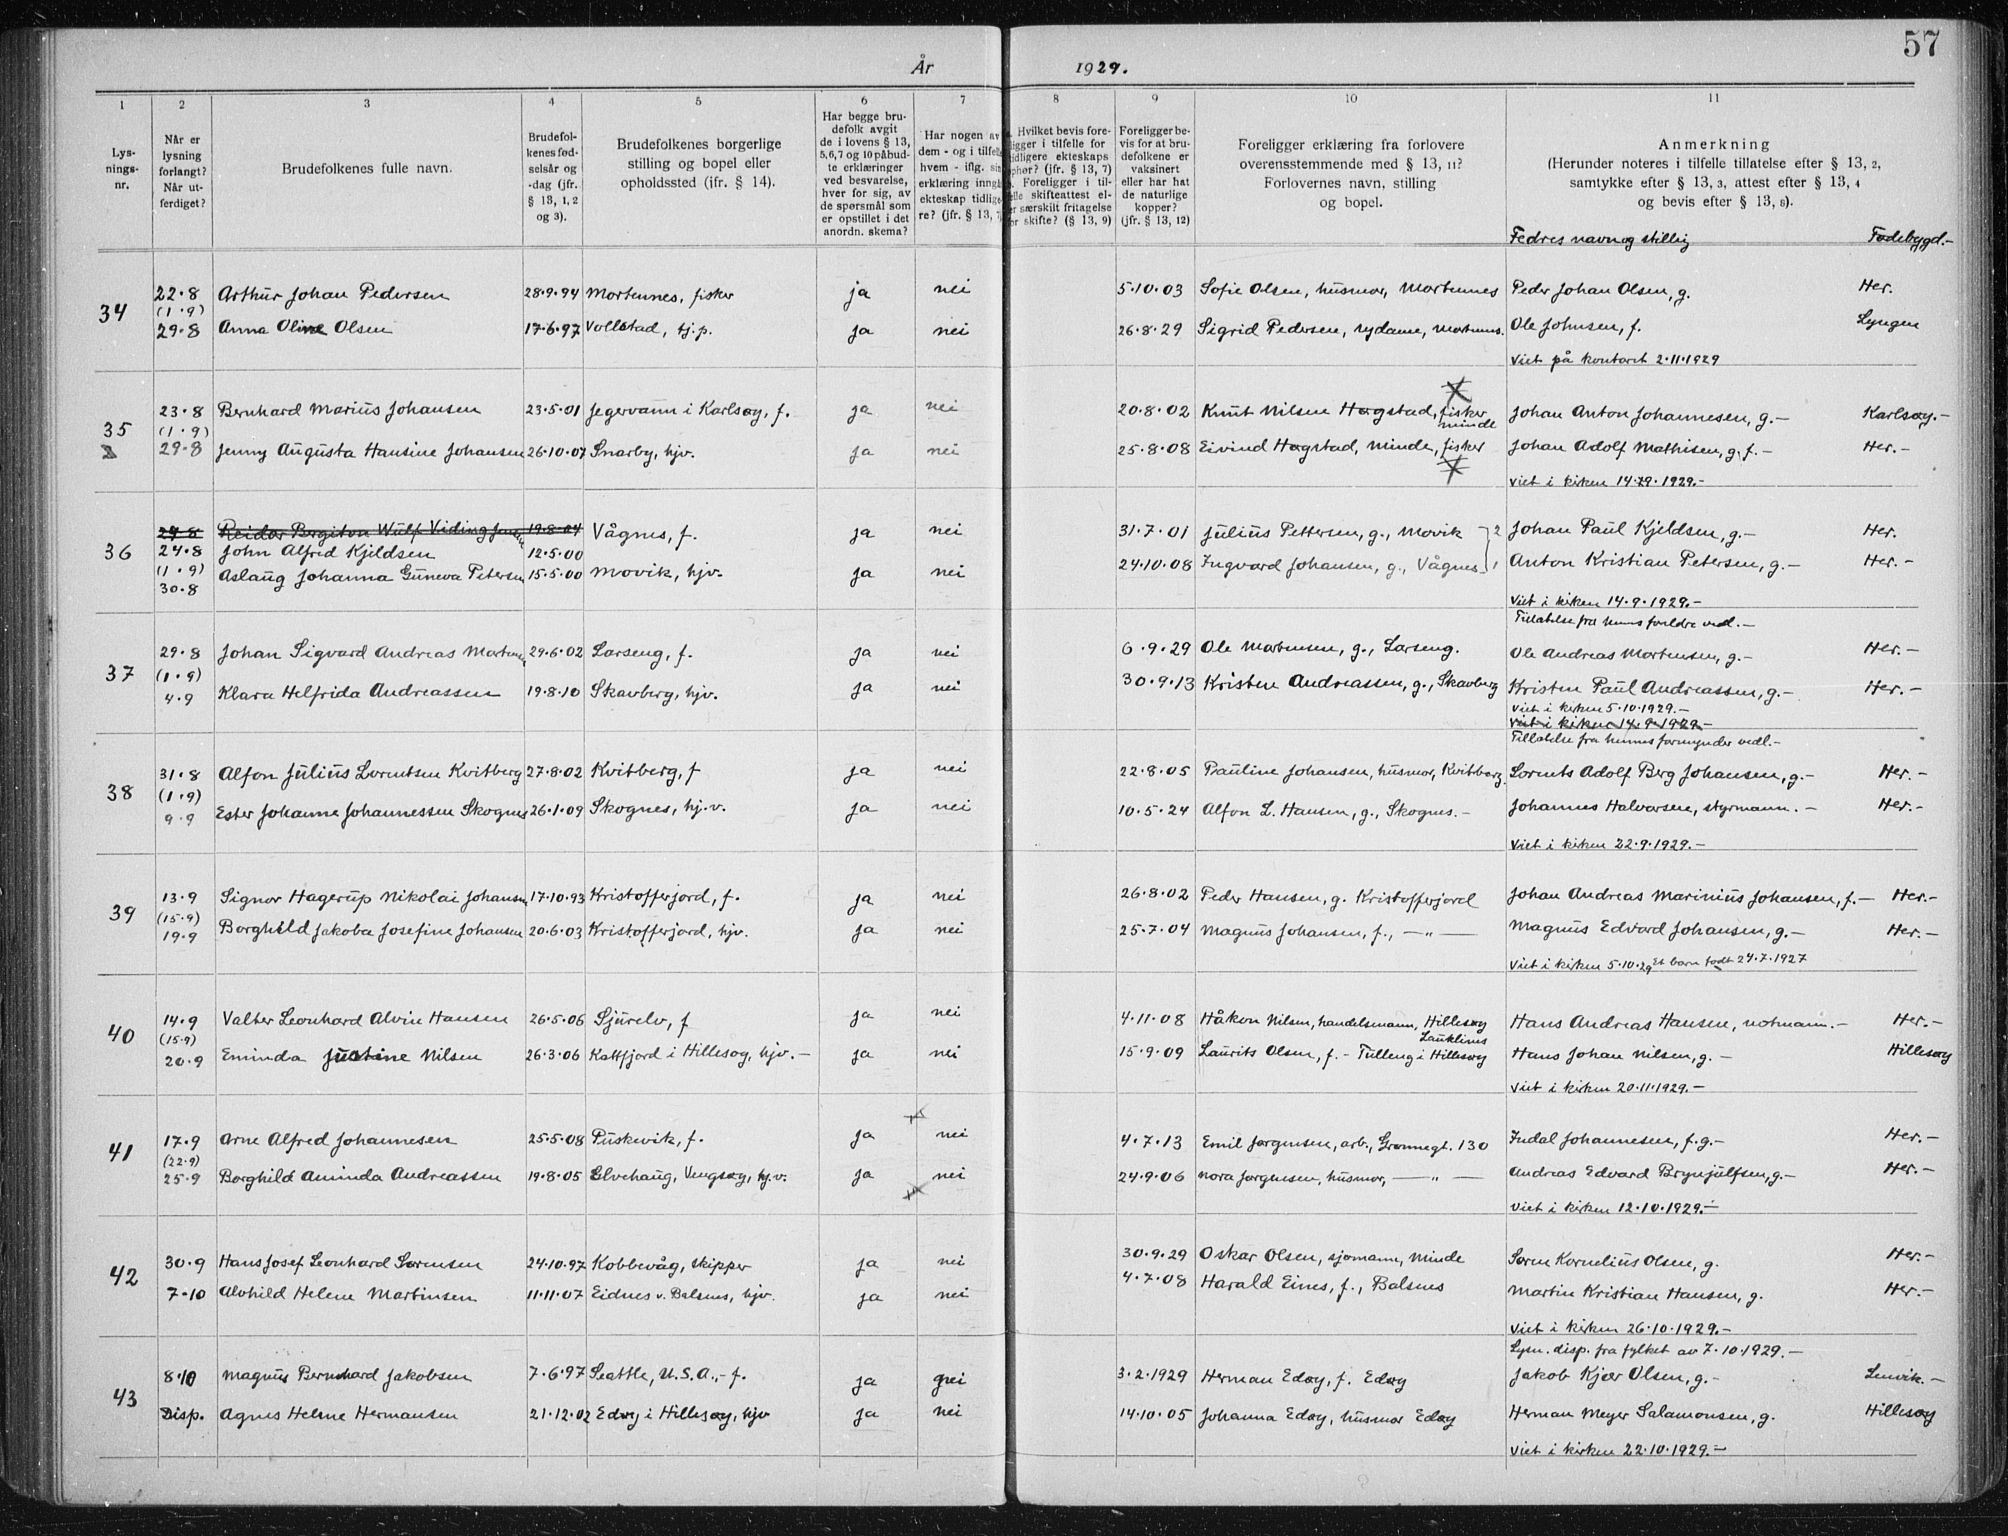 57
År 1929.
1 2 3 4 5 6 7 8 9 10 11
Lysnings-nr.
Når er lysning forlangt? Når utferdiget?
Brudefolkenes fulle navn.
Brudefolkenes fødselsår og -dag (jfr. § 13, 1, 2 og 3).
Brudefolkenes borgerlige stilling og bopel eller opholdssted (ifr. § 14).
Har begge brudefolk avgit de i lovens § 13, 5, 6, 7 og 10 påbudte erklæringer ved besvarelse, hver for sig, av de spørsmål som er opstillet i det anordn. skema?
Har nogen av dem - og i tilfelle hvem - iflg. sin erklæring inngå ekteskap tidligere? (jfr. § 13, 7
Hvilket bevis foreligger i tilfelle for tidligere ekteskaps ophør? (jfr. § 13, 7) Foreligger i tilfelle skifteattest eller særskilt fritagelse for skifte? (§ 13, 9)
Foreligger bevis for at brudefolkene er vaksinert eller har hat de naturlige kopper? (jfr. § 13, 12)
Foreligger erklæring fra forlovere overensstemmende med § 13, 11? Forlovernes navn, stilling og bopel.
Anmerkning (Herunder noteres i tilfelle tillatelse efter § 13, 2, samtykke efter § 13, 3, attest efter § 13, 4 og bevis efter § 13, 8).
Fedres navn og stillig Fødebygd.-
34 22.8 Arthur Johan Pedersen 28.9.94 Mortennes, fisker ja nei 5.10.03 Sofie Olsen, husmor, Mortennes Peder Johan Olsen, g. Her.
(1.9)
29.8 Anna Oline Olsen 17.6.97 Vollstad, tj.p. ja nei 26.8.29 Sigrid Pedersen, sydame, Mortennes. Ole Johnsen, f. Lyngen
Viet på kontoret 2.11.1929
35 23.8 Bernhard Marius Johansen 23.5.01 Jegervann i Karlsøy, f. ja nei 20.8.02 Knut Nilsen Hagstad, fisker minde Johan Anton Johannesen, g.- Karlsøy.-
(1.9)
29.8 Jenny Augusta Hansine Johansen 26.10.07 Snarby, hjv. ja nei 25.8.08 Eivind Hagstad, Minde, fisker Johan Adolf Mathisen, g.f.- Her.-
viet i kirken 14.9.1929.-
36 29.8 Reidar Bergiton Wulf Viding 19.8.04 Vågnes, f. ja nei 31.7.01 Julius Pettersen, g., Movik 2 Johan Paul Kjeldsen, g.- Her.
24.8 John Alfred Kjeldsen 12.5.00
(1.9) Aslaug Johanna Guneva Petersen 15.5.00 Movik, hjv. ja nei 24.10.08 Ingvard Johansen, g., Vågnes 1 Anton Kristian Petersen, g.- Her.-
30.8
Viet i kirken 14.9.1929.-
Tillatelse fra hennes foreldre ved.-
37 29.8 Johan Sigvard Andreas Mortensen 29.6.02 Larseng, f. ja nei 6.9.29 Ole Mortensen, g., Larseng. Ole Andreas Mortensen, g.- Her.-
(1.9)
4.9 Klara Helfrida Andreassen 19.8.10 Skavberg, hjv. ja nei 30.9.13 Kristen Andreassen, g., Skavberg Kristen Paul Andreassen, g.- Her.-
Viet i kirken 5.10.1929.-
Viet i kirken 14.9.1929.-
Tillatelse fra hennes formynder vedl.-
38 31.8 Alfon Julius Lorentsen Kvitberg 27.8.02 Kvitberg, f ja nei 22.8.05 Pauline Johansen, husmor, Kvitberg. Lorents Adolf Berg Johansen, g.- Her.-
(1.9)
9.9 Ester Johanne Johannessen Skognes 26.1.09 Skognes, hj.v. ja nei 10.5.24 Alfon L. Hansen, g., Skognes.- Johannes Halvorsen, styrmann.- Her.-
Viet i kirken 22.9.1929.-
39 13.9 Signor Hagerup Nikolai Johansen 17.10.93 Kristofferjord, f. ja nei 26.8.02 Peder Hansen, g. Kristofferjord Johan Andreas Marinius Johansen, f.- Her.-
(15.9)
19.9 Borghild Jakoba Josefine Johansen 20.6.03 Kristofferjord, hjv. ja nei 25.7.04 Magnus Johansen, f., -„- Magnus Edvard Johansen, g.- Her.-
Viet i kirken 5.10.29 Et barn født 24.7.1927
40 14.9 Valter Leonhard Alvin Hansen 26.5.06 Sjurelv, f ja nei 4.11.08 Håkon Nilsen, handelsmann, Hillesøy Hans Andreas Hansen, notmann.- Her.-
(15.9) Lauklines
20.9 Eminda Justine Nilsen 26.3.06 Kattfjord i Hillesøy, hjv.- ja nei 15.9.09 Laurits Olsen, f.- Tulleng i Hillesøy Hans Johan Nilsen, g.- Hillesøy
Viet i kirken 20.11.1929.-
41 17.9 Arne Alfred Johannesen 25.5.08 Buskevik, f. ja nei 4.7.13 Emil Jørgensen, arb., Grønnegt. 130 Indal Johannesen, f.g.- Her.-
(22.9)
25.9 Borghild Aminda Andreassen 19.8.05 Elvehaug, Vengsøy, hj.v. ja nei 24.9.06 Nora Jørgensen, husmor, -„- Andreas Edvard Brynjulfsen, g.- Her.-
Viet i kirken 12.10.1929.-
42 30.9 Hans Josef Leonhard Sørensen 24.10.97 Kobbevåg, skipper ja nei 30.9.29 Oskar Olsen, sjømann, Minde Søren Kornelius Olsen, g. Her.-
7.10 Alvhild Helene Martinsen 11.11.07 Eidnes v. Balsnes, hjv. ja nei 4.7.08 Harald Eines, f., Balsnes Martin Kristian Hansen, g. Her.-
Viet i kirken 26.10.1929.-
Lysn. disp. fra fylket av 7.10.1929.-
43 8.10 Magnus Bernhard Jakobsen 7.6.97 Seattle, U.S.A.,- f. ja nei 3.2.1929 Herman Edøy, f. Edøy Jakob Kjær Olsen, g.- Lenvik.-
Disp. Agnes Helene Hermansen 21.12.02 Edøy i Hillesøy, hjv ja nei 14.10.05 Johanna Edøy, husmor Edøy Herman Meyer Salamonsen, g. Hillesøy
Viet i kirken 22.10.1929.-